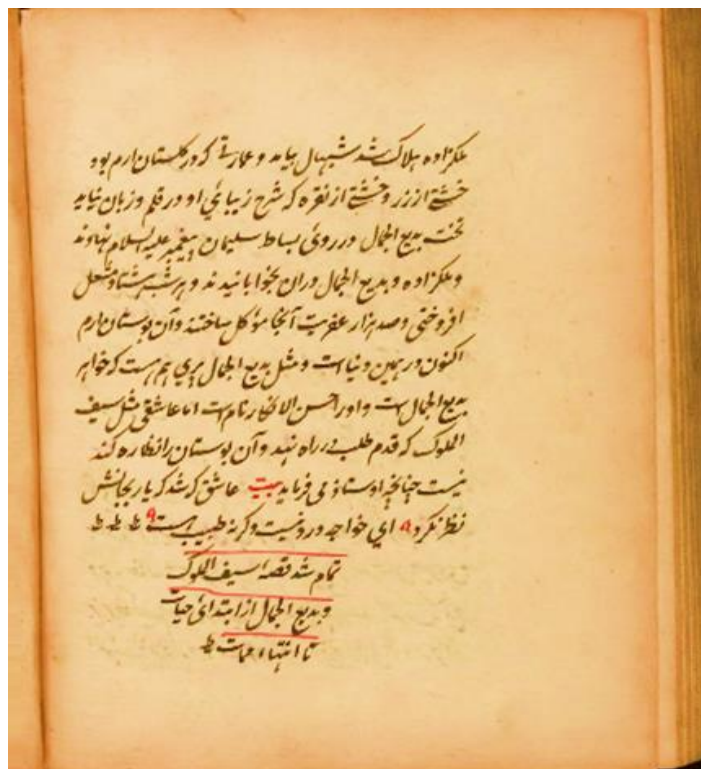 ملکزاده هلاک شد شهپال بیامد و عمارتی که در گلستان ارم بود
خشتی از زر و خشتی از نقره که شرح زیبائی او در قلم و زبان نیاید
تخت بدیع الجمال در روی بساط سلیمان پیغمبر علیه السلام نهادند
و ملکزاده و بدیع الجمال دران بخوابانیدند و هر شب هشتاد مشعل
افروختی و صد هزار عفریت آنجا موکل ساختند و آن بوستان ارم
اکنون در همین دنیا است و مثل بدیع الجمال پری هم هست که خواهر
بدیع الجمال است و او را حسن الافکار نام است اما عاشقی مثل سیف
الملوک که قدم طلب در راه نهد و آن بوستان را نظاره کند
نیست چنانچه اوستاد می فرماید بیت عاشق که شد که یار بحالش
نظر نکرد ای خواجه درد نیست وگرنه طبیب هست
تمام شد قصه سیف الملوک
و بدیع الجمال از ابتدائ حیات
تا انتهاء ممات